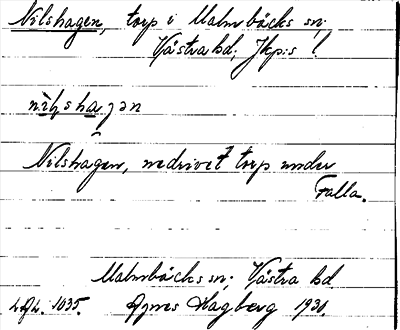 Nilshagen, torp i Malmbäcks sn;
Västra hd; Jkp:s l
Nilshagen, nedrivet torp under
Falla.
Malmbäcks sn; Västra hd
1035. Agnes Hagberg 1930.